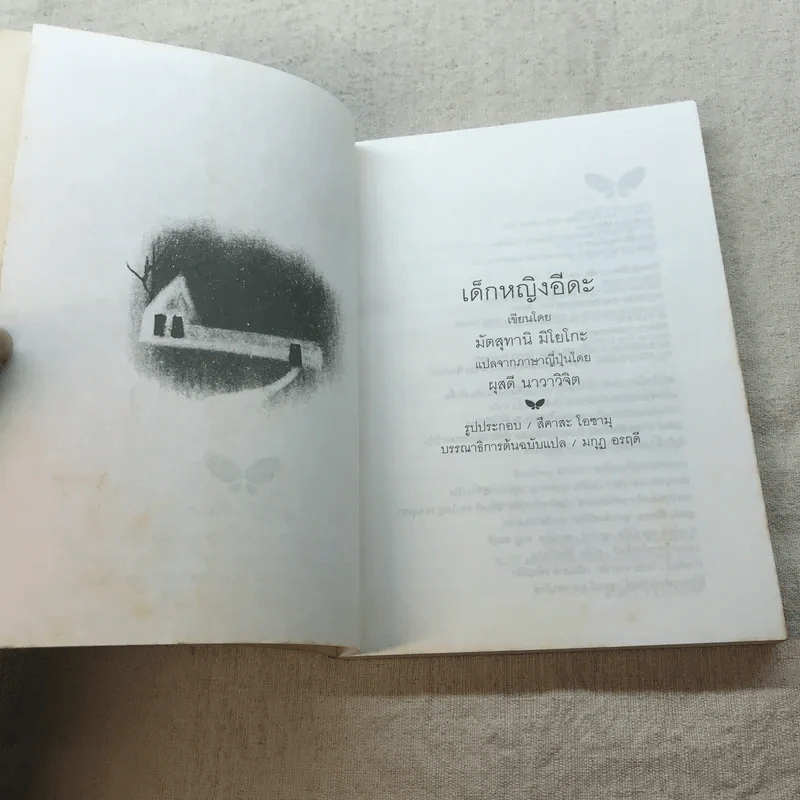 เด็กหญิงอีดะ
เขียนโดย
มัตสุทานิ มิโยโกะ
แปลจากภาษาญี่ปุ่นโดย
ผุสดี นาวาวิจิต
รูปประกอบ / สึคาสะ โอซามุ
บรรณาธิการต้นฉบับแปล / มกุฏ อรฤดี